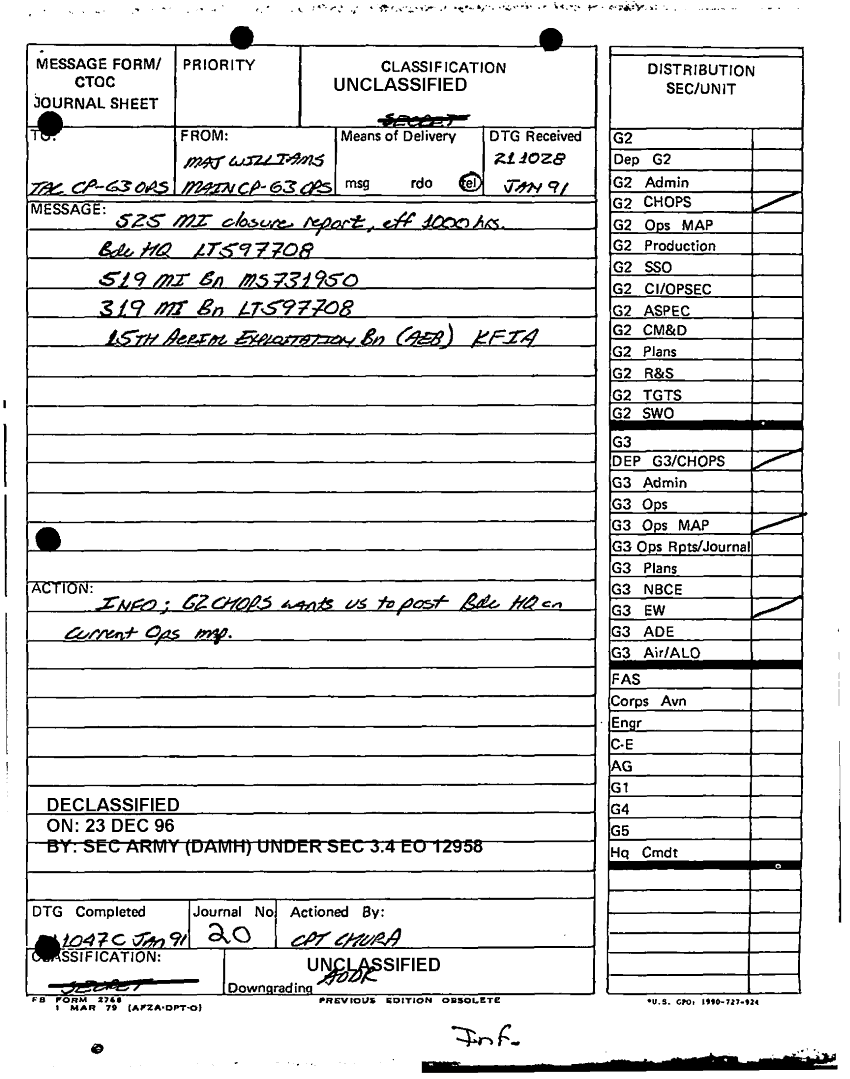 MESSAGE FORM/ CTOC JOURNAL SHEET
PRIORITY
CLASSIFICATION
UNCLASSIFIED
SECRET
TO:
TAC CP-G3 OPS
FROM:
MAJ WILLIAMS
MAIN CP-G3 OPS
Means of Delivery
msg rdo tel
DTG Received
211028
JAN 91
MESSAGE:
525 MI closure report, eff 1000 hrs.
Bde HQ LT597708
519 MI Bn MS731950
319 MI Bn LT597708
15TH AERIAL EXPLOITATION Bn (AEB) KFIA
ACTION:
INFO; G2 CHOPS wants us to post Bde HQ on
Current Ops map.
DECLASSIFIED
ON: 23 DEC 96
BY: SEC ARMY (DAMH) UNDER SEC 3.4 EO 12958
DTG Completed
11047C JAN 91
Journal No
20
Actioned By:
CPT CHURA
CLASSIFICATION:
SECRET
UNCLASSIFIED
Downgrading OADR
FB FORM 2768
1 MAR 79 (AFZA-DPT-O)
PREVIOUS EDITION OBSOLETE
DISTRIBUTION
SEC/UNIT
G2
Dep G2
G2 Admin
G2 CHOPS
G2 Ops MAP
G2 Production
G2 SSO
G2 CI/OPSEC
G2 ASPEC
G2 CM&D
G2 Plans
G2 R&S
G2 TGTS
G2 SWO
G3
DEP G3/CHOPS
G3 Admin
G3 Ops
G3 Ops MAP
G3 Ops Rpts/Journal
G3 Plans
G3 NBCE
G3 EW
G3 ADE
G3 Air/ALO
FAS
Corps Avn
Engr
C-E
AG
G1
G4
G5
Hq Cmdt
*U.S. GPO: 1990-727-924
Inf.